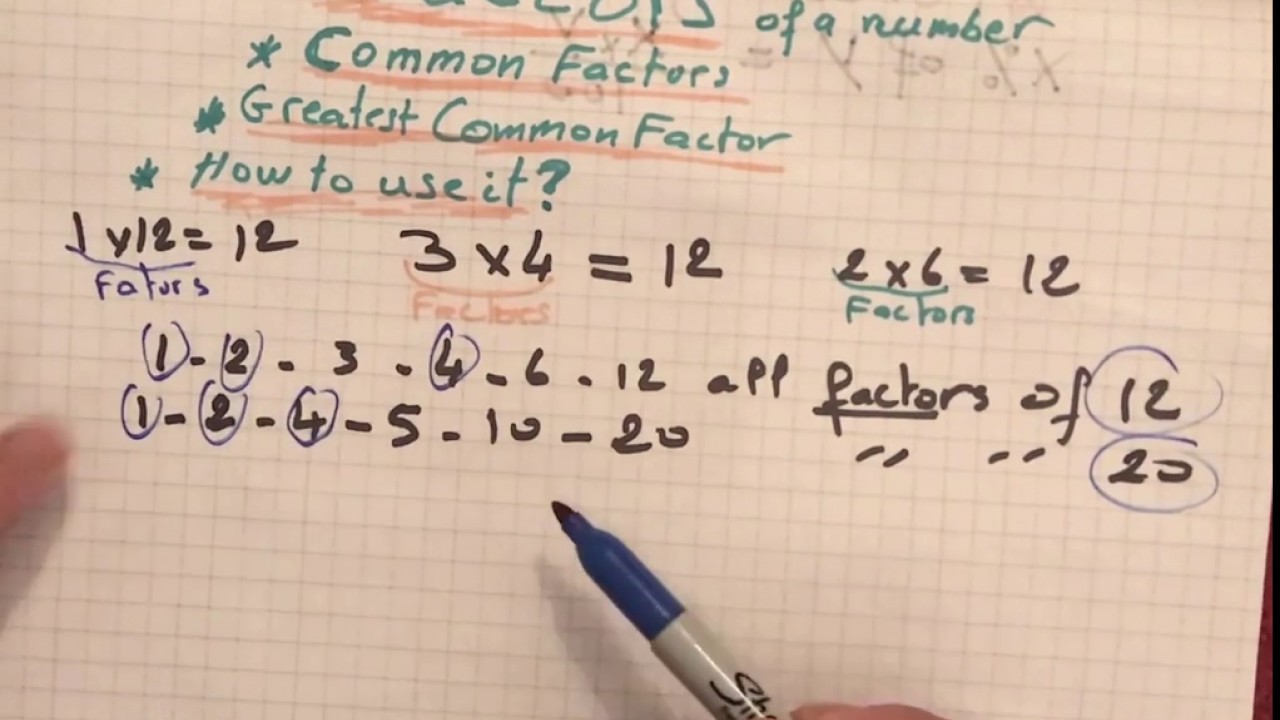 of a number
* Common Factors
* Greatest Common Factor
* How to use it?
1 x 12 = 12
3 x 4 = 12
2 x 6 = 12
Fators
Factores
Factors
1 - 2 - 3 - 4 - 6 - 12 all factors of 12
1 - 2 - 4 - 5 - 10 - 20 " " 20